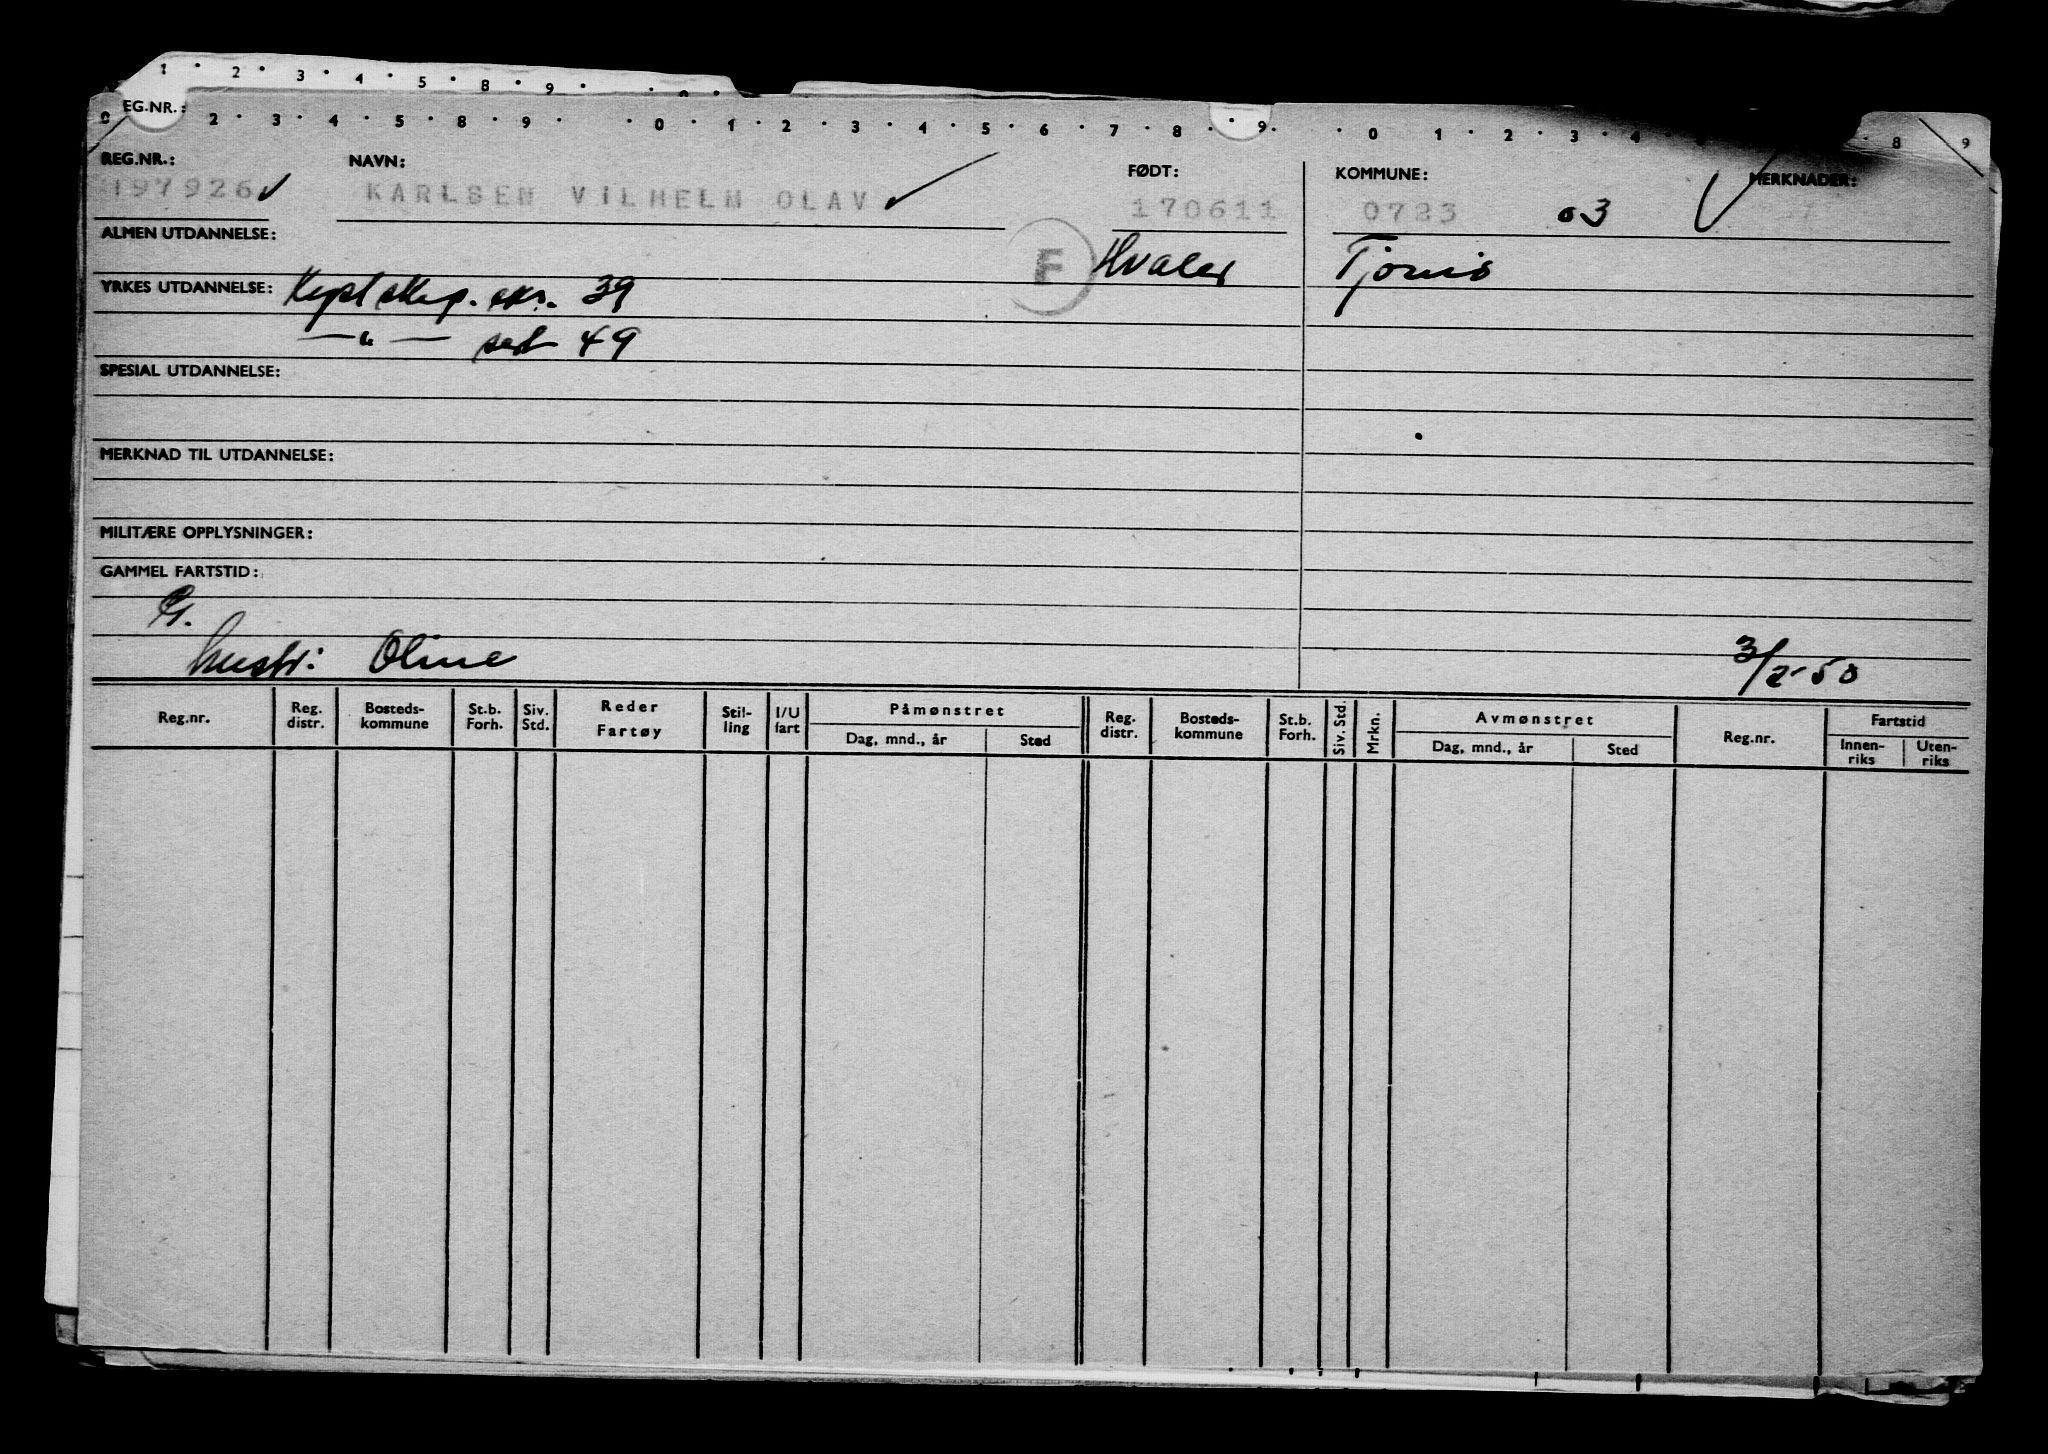 1 · 2 · 3 · 4 · 5 · 8 · 9 · · 0 ·
EG.NR.:
0 2 · 3 · 4 · 5 · 8 · 9 · · 0 · 1 · 2 · 3 · 4 · 5 · 6 · 7 · 8 · 9 · · 0 1 · 2 · 3 · 4 8 9
REG.NR.: NAVN: FØDT: KOMMUNE: MERKNADER:
197926 KARLSEN VILHELM OLAV 170611 0723 03
ALMEN UTDANNELSE: F Hvaler Tjøme
YRKES UTDANNELSE: 39
—"— sert 49
SPESIAL UTDANNELSE:
MERKNAD TIL UTDANNELSE:
MILITÆRE OPPLYSNINGER:
GAMMEL FARTSTID:
hustr: Oline 3/2-50
Reg.nr. Reg. distr. Bosteds-kommune St.b. Forh. Siv. Std. Reder Fartøy Stil-ling I/U fart Påmønstret Reg. distr. Bosteds-kommune St.b. Forh. Siv. Std. Mrkn. Avmønstret Reg.nr. Fartstid
Dag, mnd., år Sted Dag, mnd., år Sted Innen-riks Uten-riks